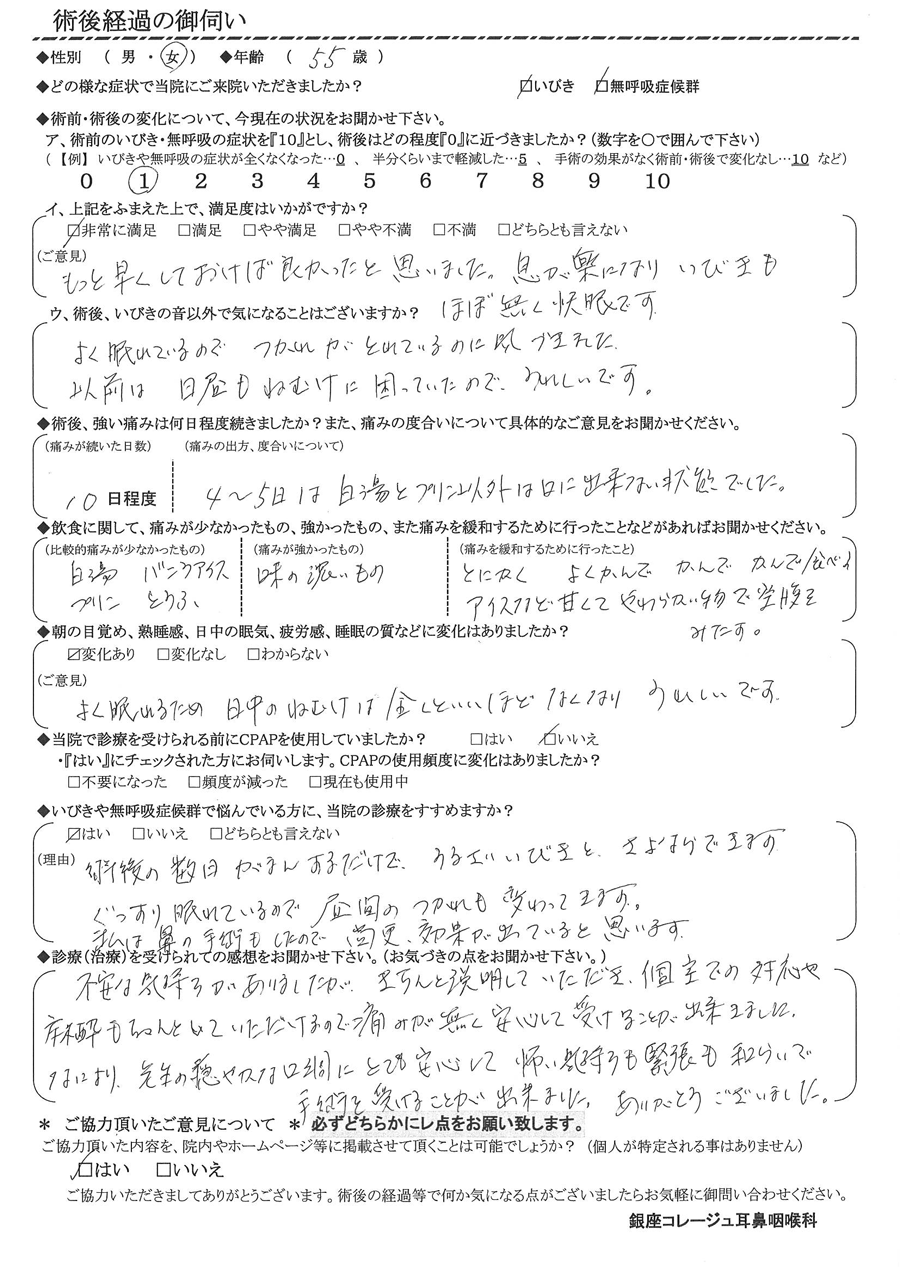 術後経過の御伺い
◆性別 ( 男 ・ 女 ) ◆年齢 ( 55 歳 )
◆どの様な症状で当院にご来院いただきましたか? ☑いびき ☑無呼吸症候群
◆術前・術後の変化について、今現在の状況をお聞かせ下さい。
ア、術前のいびき・無呼吸の症状を『10』とし、術後はどの程度『0』に近づきましたか?(数字を〇で囲んで下さい)
(【例】 いびきや無呼吸の症状が全くなくなった…0 、 半分くらいまで軽減した…5 、 手術の効果がなく術前・術後で変化なし…10 など)
0 1 2 3 4 5 6 7 8 9 10
イ、上記をふまえた上で、満足度はいかがですか?
☑非常に満足 □満足 □やや満足 □やや不満 □不満 □どちらとも言えない
(ご意見)
もっと早くしておけば良かったと思いました。息が楽になり いびきも
ほぼ無く快眠です
ウ、術後、いびきの音以外で気になることはございますか?
よく眠れているので つかれがとれているのに気づきました
以前は 日昼もねむけに困っていたので、うれしいです。
◆術後、強い痛みは何日程度続きましたか?また、痛みの度合いについて具体的なご意見をお聞かせください。
(痛みが続いた日数) (痛みの出方、度合いについて)
10 日程度 4〜5日は白湯とプリン以外は口に出来ない状態でした。
◆飲食に関して、痛みが少なかったもの、強かったもの、また痛みを緩和するために行ったことなどがあればお聞かせください。
(比較的痛みが少なかったもの) (痛みが強かったもの) (痛みを緩和するために行ったこと)
白湯 バニラアイス 味の濃いもの とにかく よくかんで かんで かんで食べる
プリン とうふ、 アイスなど甘くてやわらかい物で空腹を
みたす。
◆朝の目覚め、熟睡感、日中の眠気、疲労感、睡眠の質などに変化はありましたか?
☑変化あり □変化なし □わからない
(ご意見)
よく眠れるため 日中のねむけは全くといいほどなくなり うれしいです
◆当院で診療を受けられる前にCPAPを使用していましたか? □はい ☑いいえ
・『はい』にチェックされた方にお伺いします。CPAPの使用頻度に変化はありましたか?
□不要になった □頻度が減った □現在も使用中
◆いびきや無呼吸症候群で悩んでいる方に、当院の診療をすすめますか?
☑はい □いいえ □どちらとも言えない
(理由) 術後の数日がまんするだけで、うるさいいびきと、さよならできます
ぐっすり眠れているので 昼間のつかれも変わってきます。
私は鼻の手術もしたので 尚更、効果が出ていると思います
◆診療(治療)を受けられての感想をお聞かせ下さい。(お気づきの点をお聞かせ下さい。)
不安な気持ちがありましたが、きちんと説明していただき、個室での対応や
麻酔もちゃんとしていただけるので痛みが無く安心して受けることが出来ました。
なにより、先生の穏やかな口調にとても安心して 怖い気持ちも緊張も和らいで
手術を受けることが出来ました。ありがとうございました。
* ご協力頂いたご意見について * 必ずどちらかにレ点をお願い致します。
ご協力頂いた内容を、院内やホームページ等に掲載させて頂くことは可能でしょうか? (個人が特定される事はありません)
☑はい □いいえ
ご協力いただきましてありがとうございます。術後の経過等で何か気になる点がございましたらお気軽に御問い合わせください。
銀座コレージュ耳鼻咽喉科